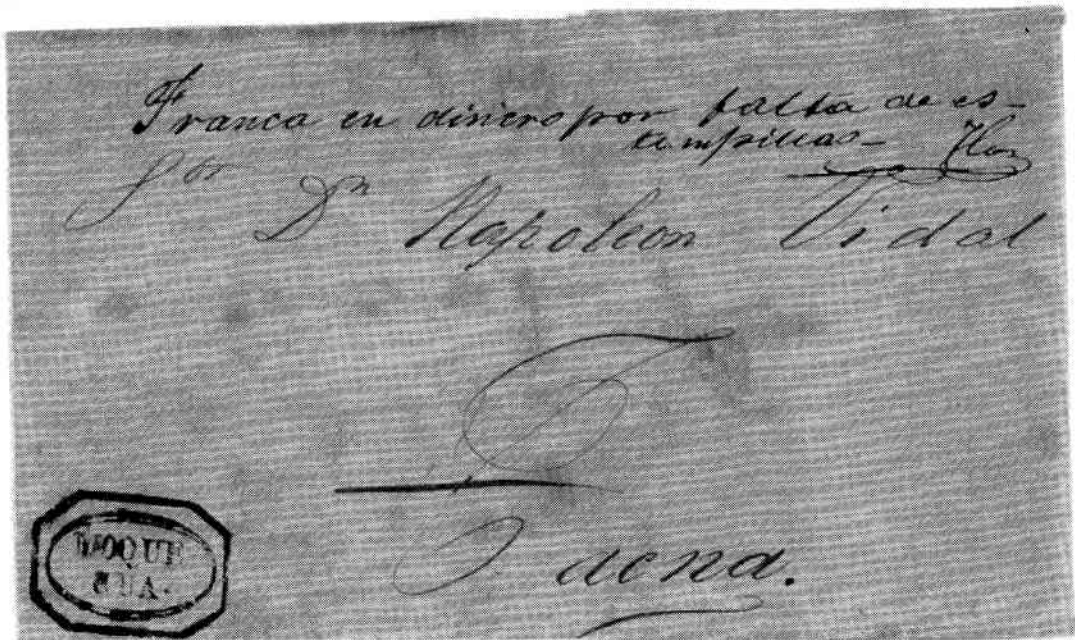 Franca en dinero por falta de es-
tampillas-
Sor
Dn Napoleon Vidal
Tacna.
MOQUE
GUA.